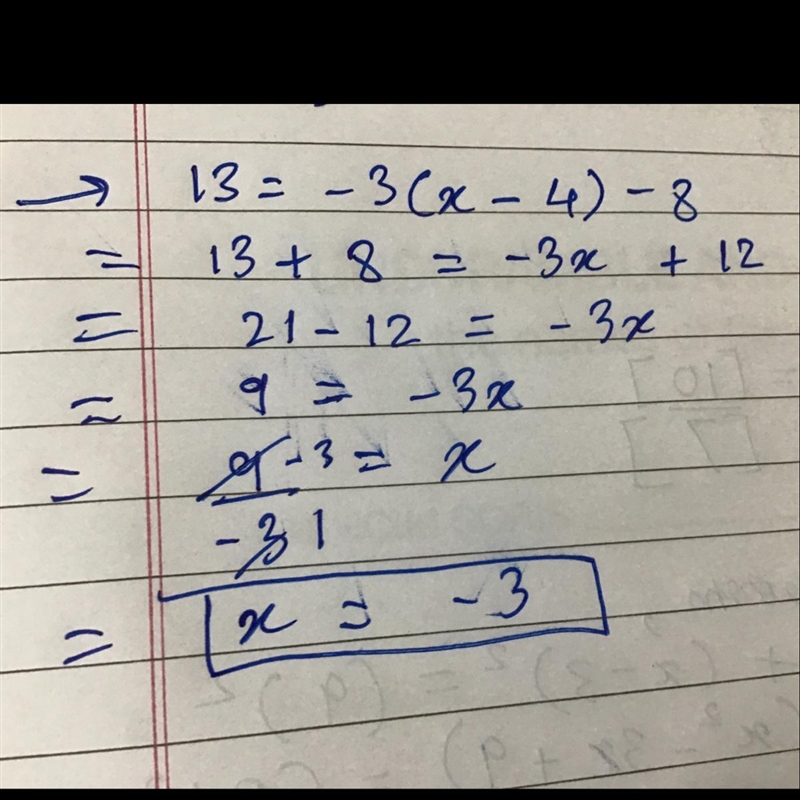 → 13 = -3(x - 4) - 8
= 13 + 8 = -3x + 12
= 21 - 12 = -3x
= 9 = -3x
= 9 -3 = x
-3 1
= x = -3